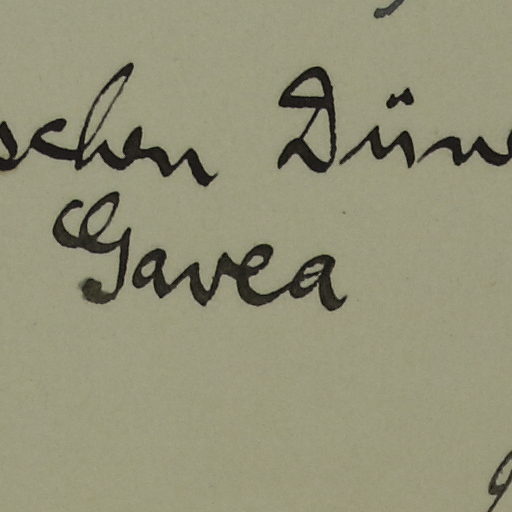 schen Düne
Gavea